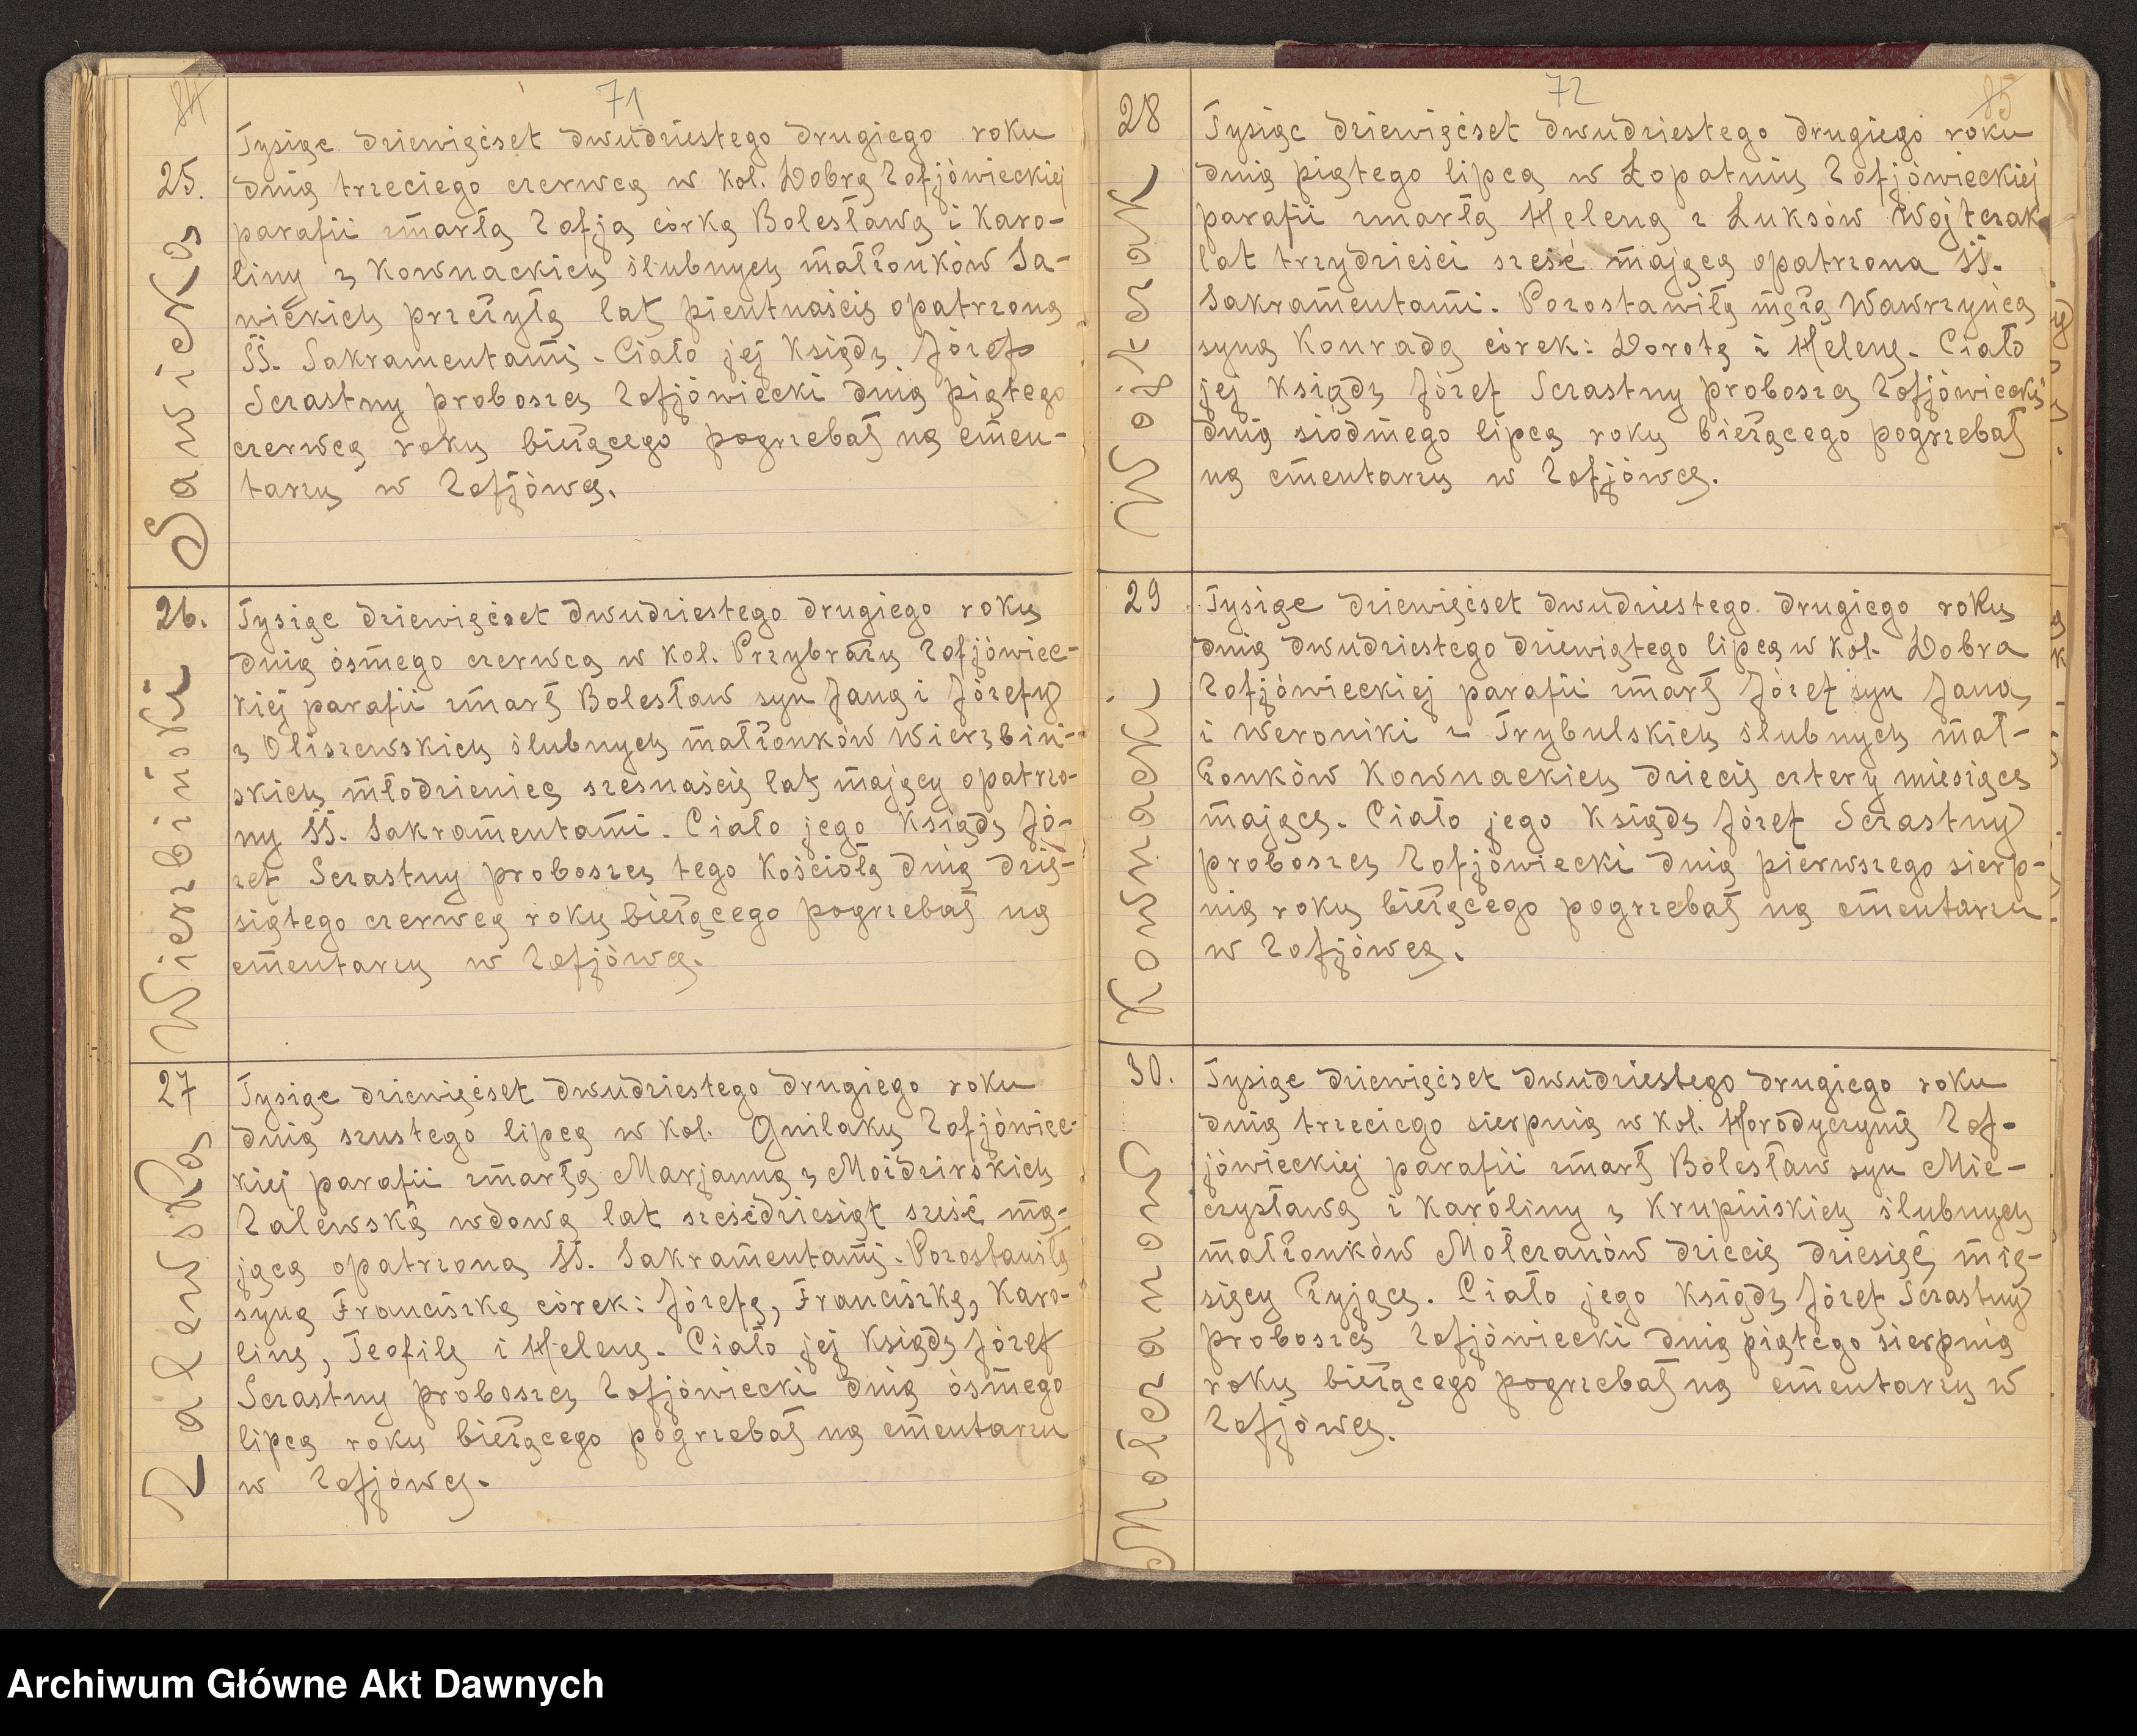 84
71
25.
Sawicka
Tysiąc dziewięćset dwudziestego drugiego roku
dnia trzeciego czerwca w kol. Dobra Zofjówieckiej
parafii zmarła Zofja córka Bolesława i Karo-
liny z Kownackich ślubnych małżonków Sa-
wickich przeżyła lat pientnaście opatrzona
ŚŚ. Sakramentami. Ciało jej Ksiądz Józef
Szzastny proboszcz Zofjówiecki dnia piątego
czerwca roku bieżącego pogrzebał na cmen-
tarzu w Zofjówce.
26.
Wierzbiński
Tysiąc dziewięćset dwudziestego drugiego roku
dnia ósmego czerwca w kol. Przybraży Zofjówiec-
kiej parafii zmarł Bolesław syn Jana i Józefy
z Oliszewskich ślubnych małżonków Wierzbiń-
skich młodzieniec szesnaście lat mający opatrzo-
ny ŚŚ. Sakramentami. Ciało jego Ksiądz Jó-
zef Szzastny proboszcz tego Kościoła dnia dzie-
siątego czerwca roku bieżącego pogrzebał na
cmentarzu w Zofjówce.
27
Zalewska
Tysiąc dziewięćset dwudziestego drugiego roku
dnia szustego lipca w kol. Gnilaku Zofjówiec-
kiej parafii zmarła Marjanna z Moździrskich
Zalewska wdowa lat sześćdziesiąt sześć ma-
jąca opatrzona ŚŚ. Sakramentami. Pozostawiła
syna Franciszka córek: Józefę, Franciszkę, Karo-
linę, Teofilę i Helenę. Ciało jej Ksiądz Józef
Szzastny proboszcz Zofjówiecki dnia ósmego
lipca roku bieżącego pogrzebał na cmentarzu
w Zofjówce.
72
85
28
Wojtczak
Tysiąc dziewięćset dwudziestego drugiego roku
dnia piątego lipca w Łopatniu Zofjówieckiej
parafii zmarła Helena z Luksów Wojtczak
lat trzydzieści sześć mająca opatrzona ŚŚ.
Sakramentami. Pozostawiła męża Wawrzyńca
syna Konrada córek: Dorotę i Helenę. Ciało
jej Ksiądz Józef Szzastny proboszcz Zofjówiecki
dnia siódmego lipca roku bieżącego pogrzebał
na cmentarzu w Zofjówce.
29
Kownacki
Tysiąc dziewięćset dwudziestego drugiego roku
dnia dwudziestego dziewiątego lipca w kol. Dobra
Zofjówieckiej parafii zmarł Józef syn Jana
i Weroniki z Trybulskich ślubnych mał-
żonków Kownackich dziecię cztery miesiące
mające. Ciało jego Ksiądz Józef Szzastny
proboszcz Zofjówiecki dnia pierwszego sierp-
nia roku bieżącego pogrzebał na cmentarzu
w Zofjówce.
30.
Mołczanow
Tysiąc dziewięćset dwudziestego drugiego roku
dnia trzeciego sierpnia w kol. Horodyczynie Zof-
jówieckiej parafii zmarł Bolesław syn Mie-
czysława i Karoliny z Krupińskich ślubnych
małżonków Mołczanów dziecię dziesięć mie-
sięcy żyjące. Ciało jego Ksiądz Józef Szzastny
proboszcz Zofjówiecki dnia piątego sierpnia
roku bieżącego pogrzebał na cmentarzu w
Zofjówce.
Archiwum Główne Akt Dawnych